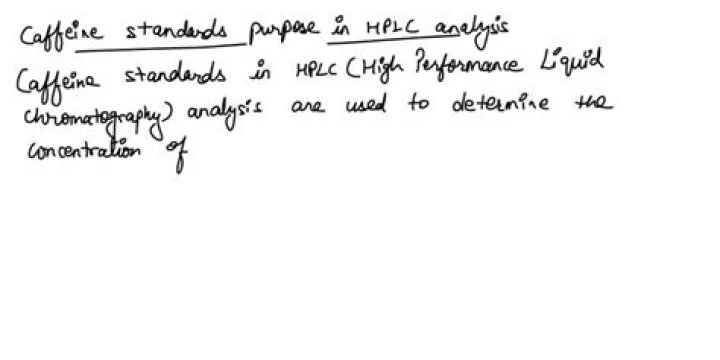 Caffeine standards purpose in HPLC analysis
Caffeine standards in HPLC (High Performance Liquid
chromatography) analysis are used to determine the
concentration of